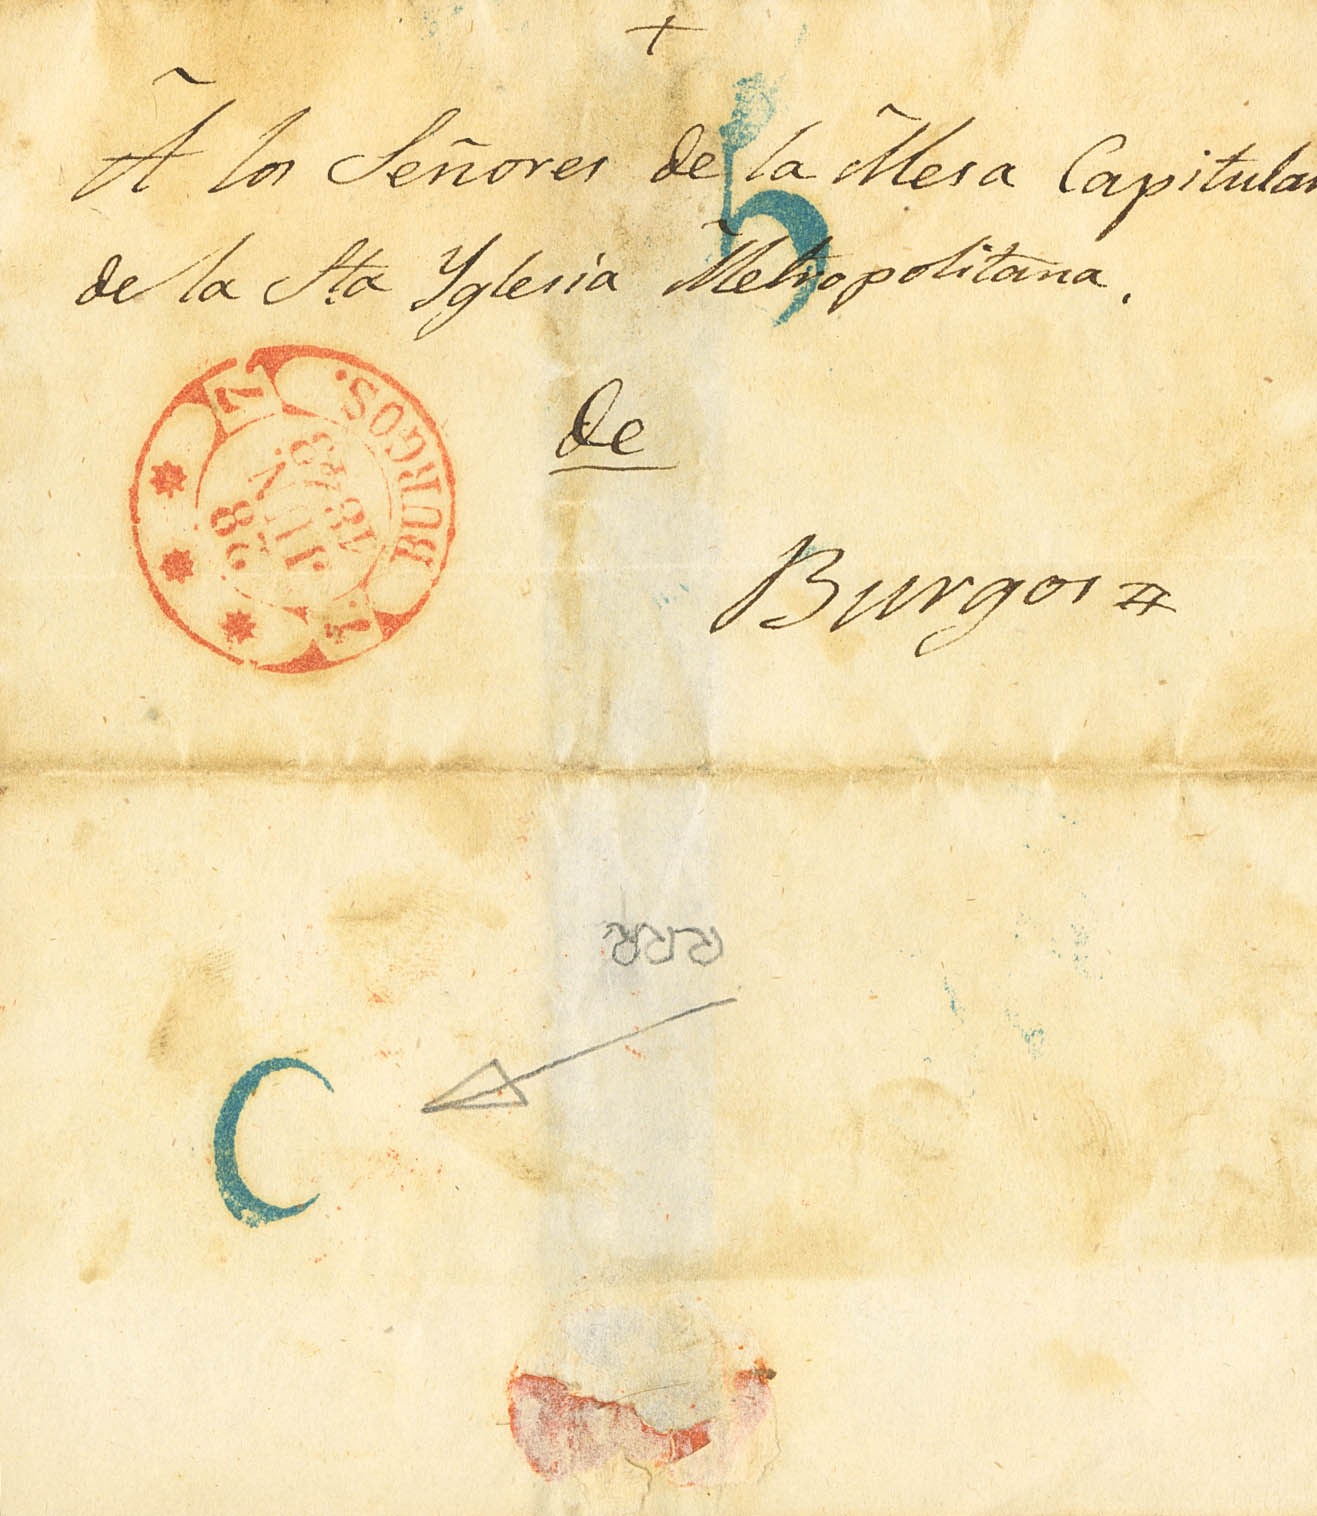 +
A los Señores de la Mesa Capitular
de la Sta Yglesia Metropolitana.
5
de
Burgos #
BURGOS.
28
JUL
1848
1.
RRR
C